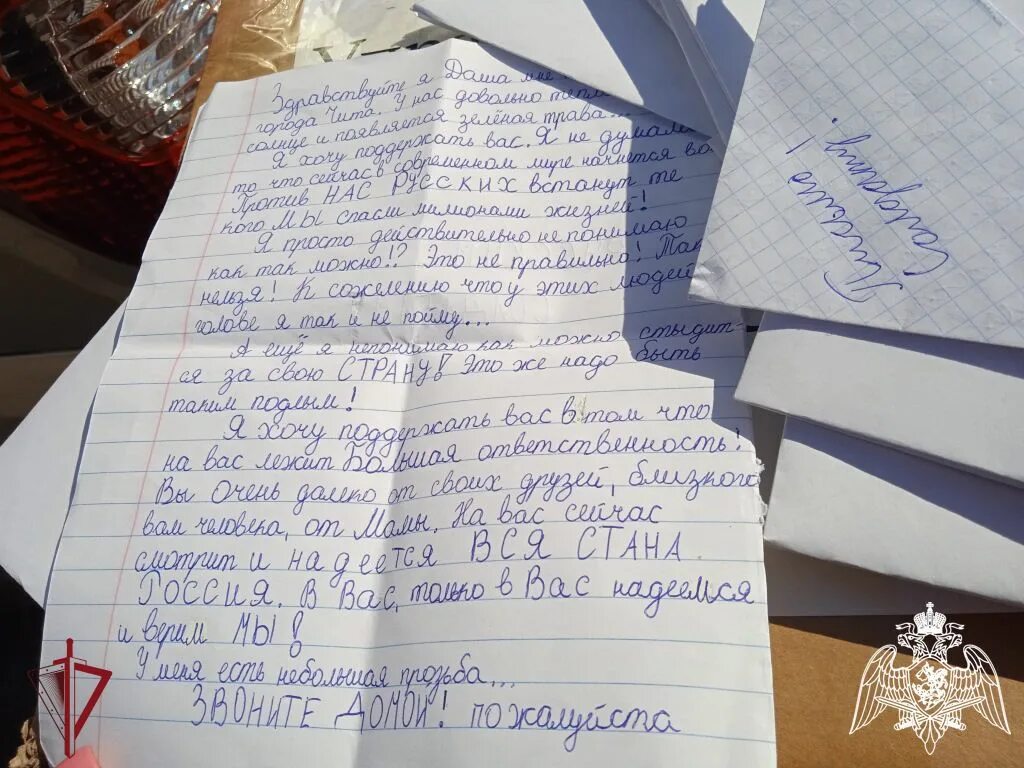 Здравствуйте я Даша мне
города Чита. У нас довольно
солнце и появляется зелёная трава...
Я хочу поддержать вас. Я не думала
то что сейчас в современном мире начнется
Против НАС РУССКИХ встанут те
кого МЫ спасли милионами жизней!
Я просто действительно не понимаю
как так можно!? Это не правильно! Так
нельзя! К сожелению что у этих людей
голове я так и не пойму...
А ещё я непонимаю как можно стыдит-
ся за свою СТРАНУ! Это же надо быть
таким подлым!
Я хочу поддержать вас в том что
на вас лежит Большая ответственность!
Вы Очень далеко от своих друзей, близкого
вам человека, от Мамы. На вас сейчас
смотрит и надеется ВСЯ СТАНА
РОССИЯ. В Вас, только в Вас надеемся
и верим МЫ!
У меня есть небольшая прозьба...
ЗВОНИТЕ ДОМОЙ! пожалуйста
Письмо
Солдату!